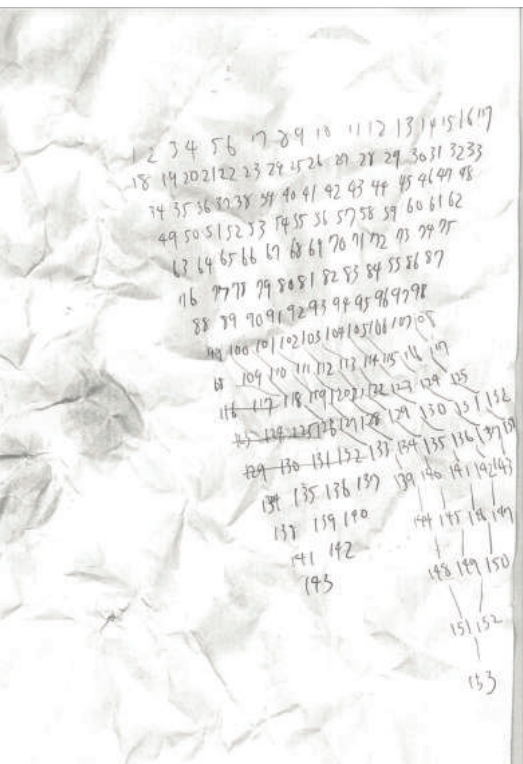 1 2 3 4 5 6 7 8 9 10 11 12 13 14 15 16 17
18 19 20 21 22 23 24 25 26 27 28 29 30 31 32 33
34 35 36 37 38 39 40 41 42 43 44 45 46 47 48
49 50 51 52 53 54 55 56 57 58 59 60 61 62
63 64 65 66 67 68 69 70 71 72 73 74 75
76 77 78 79 80 81 82 83 84 85 86 87
88 89 90 91 92 93 94 95 96 97 98
99 100 101 102 103 104 105 106 107 108
109 110 111 112 113 114 115 116 117
116 117 118 119 120 121 122 123 124 125
124 125 126 127 128 129 130 131 132
129 130 131 132 133 134 135 136 137
134 135 136 137 139 140 141 142 143
138 139 140 144 145 146 147
141 142 148 149 150
143
151 152
153